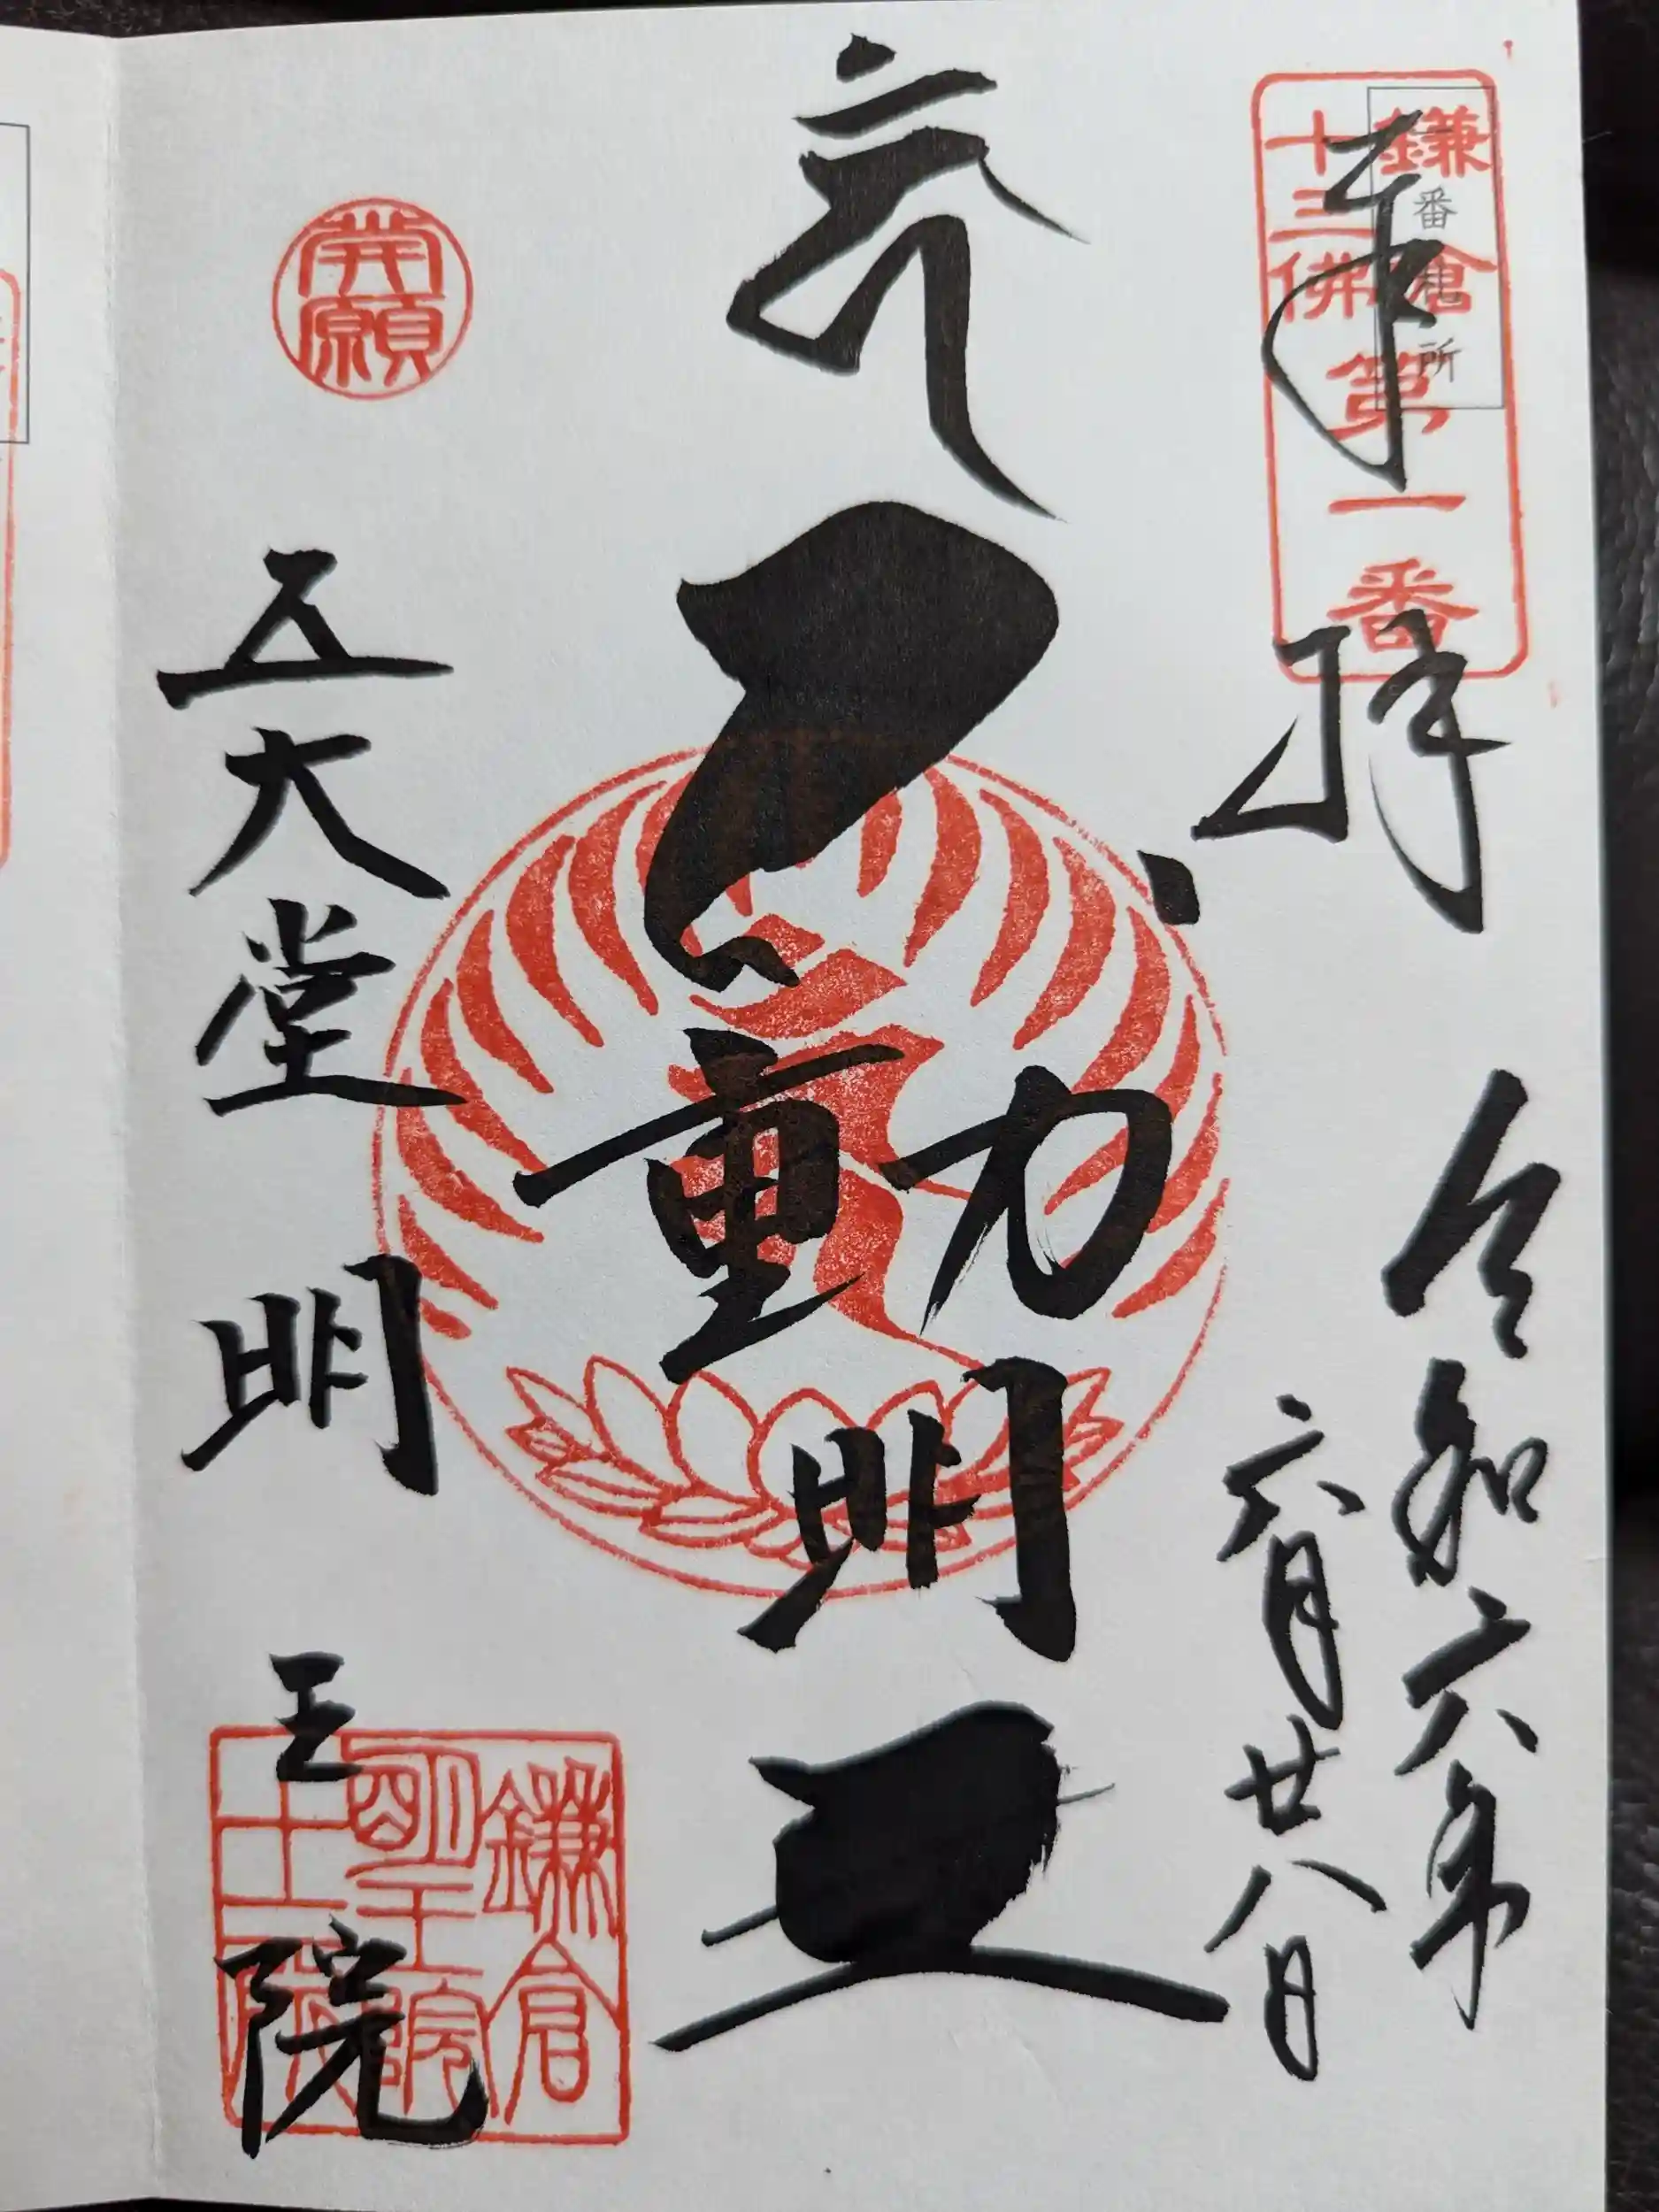 鎌倉
十三佛
第一番
番札所
奉拝
令和六年
六月廿八日
不動明王
五大堂
明王院
鎌倉
明王院